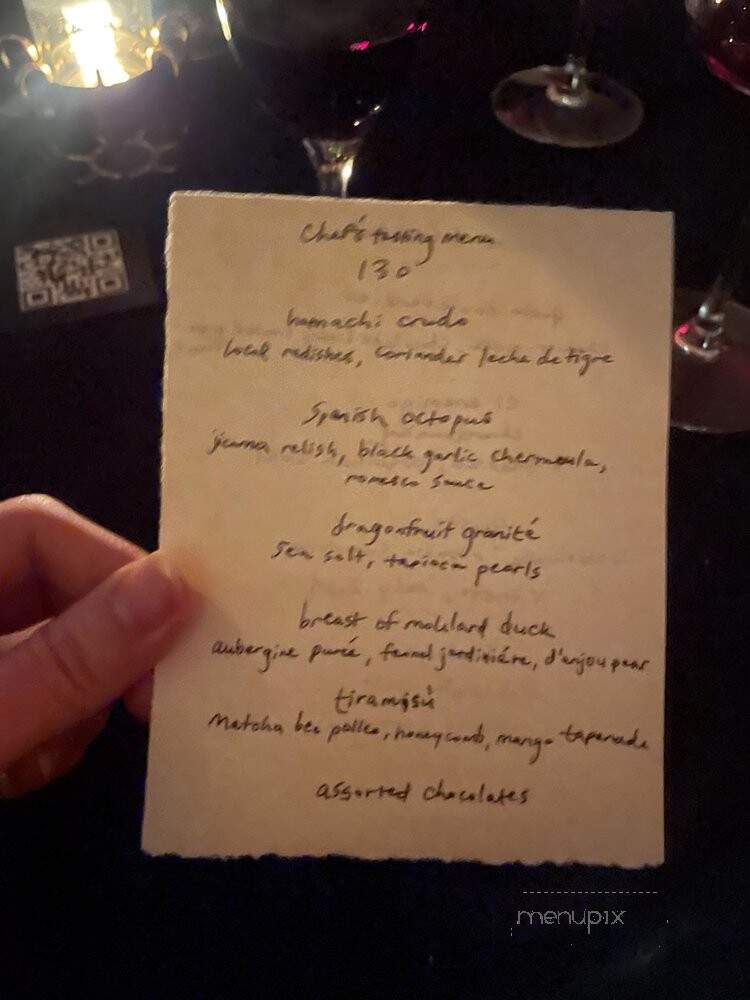 Chef's tasting menu
130
hamachi crudo
local radishes, coriander leche de tigre
Spanish octopus
jicama relish, black garlic chermoula,
romesco sauce
dragonfruit granité
sea salt, tapioca pearls
breast of moullard duck
aubergine purée, fennel jardiniére, d'anjou pear
tiramisù
Matcha bee pollen, honeycomb, mango tapenade
assorted chocolates
menupix